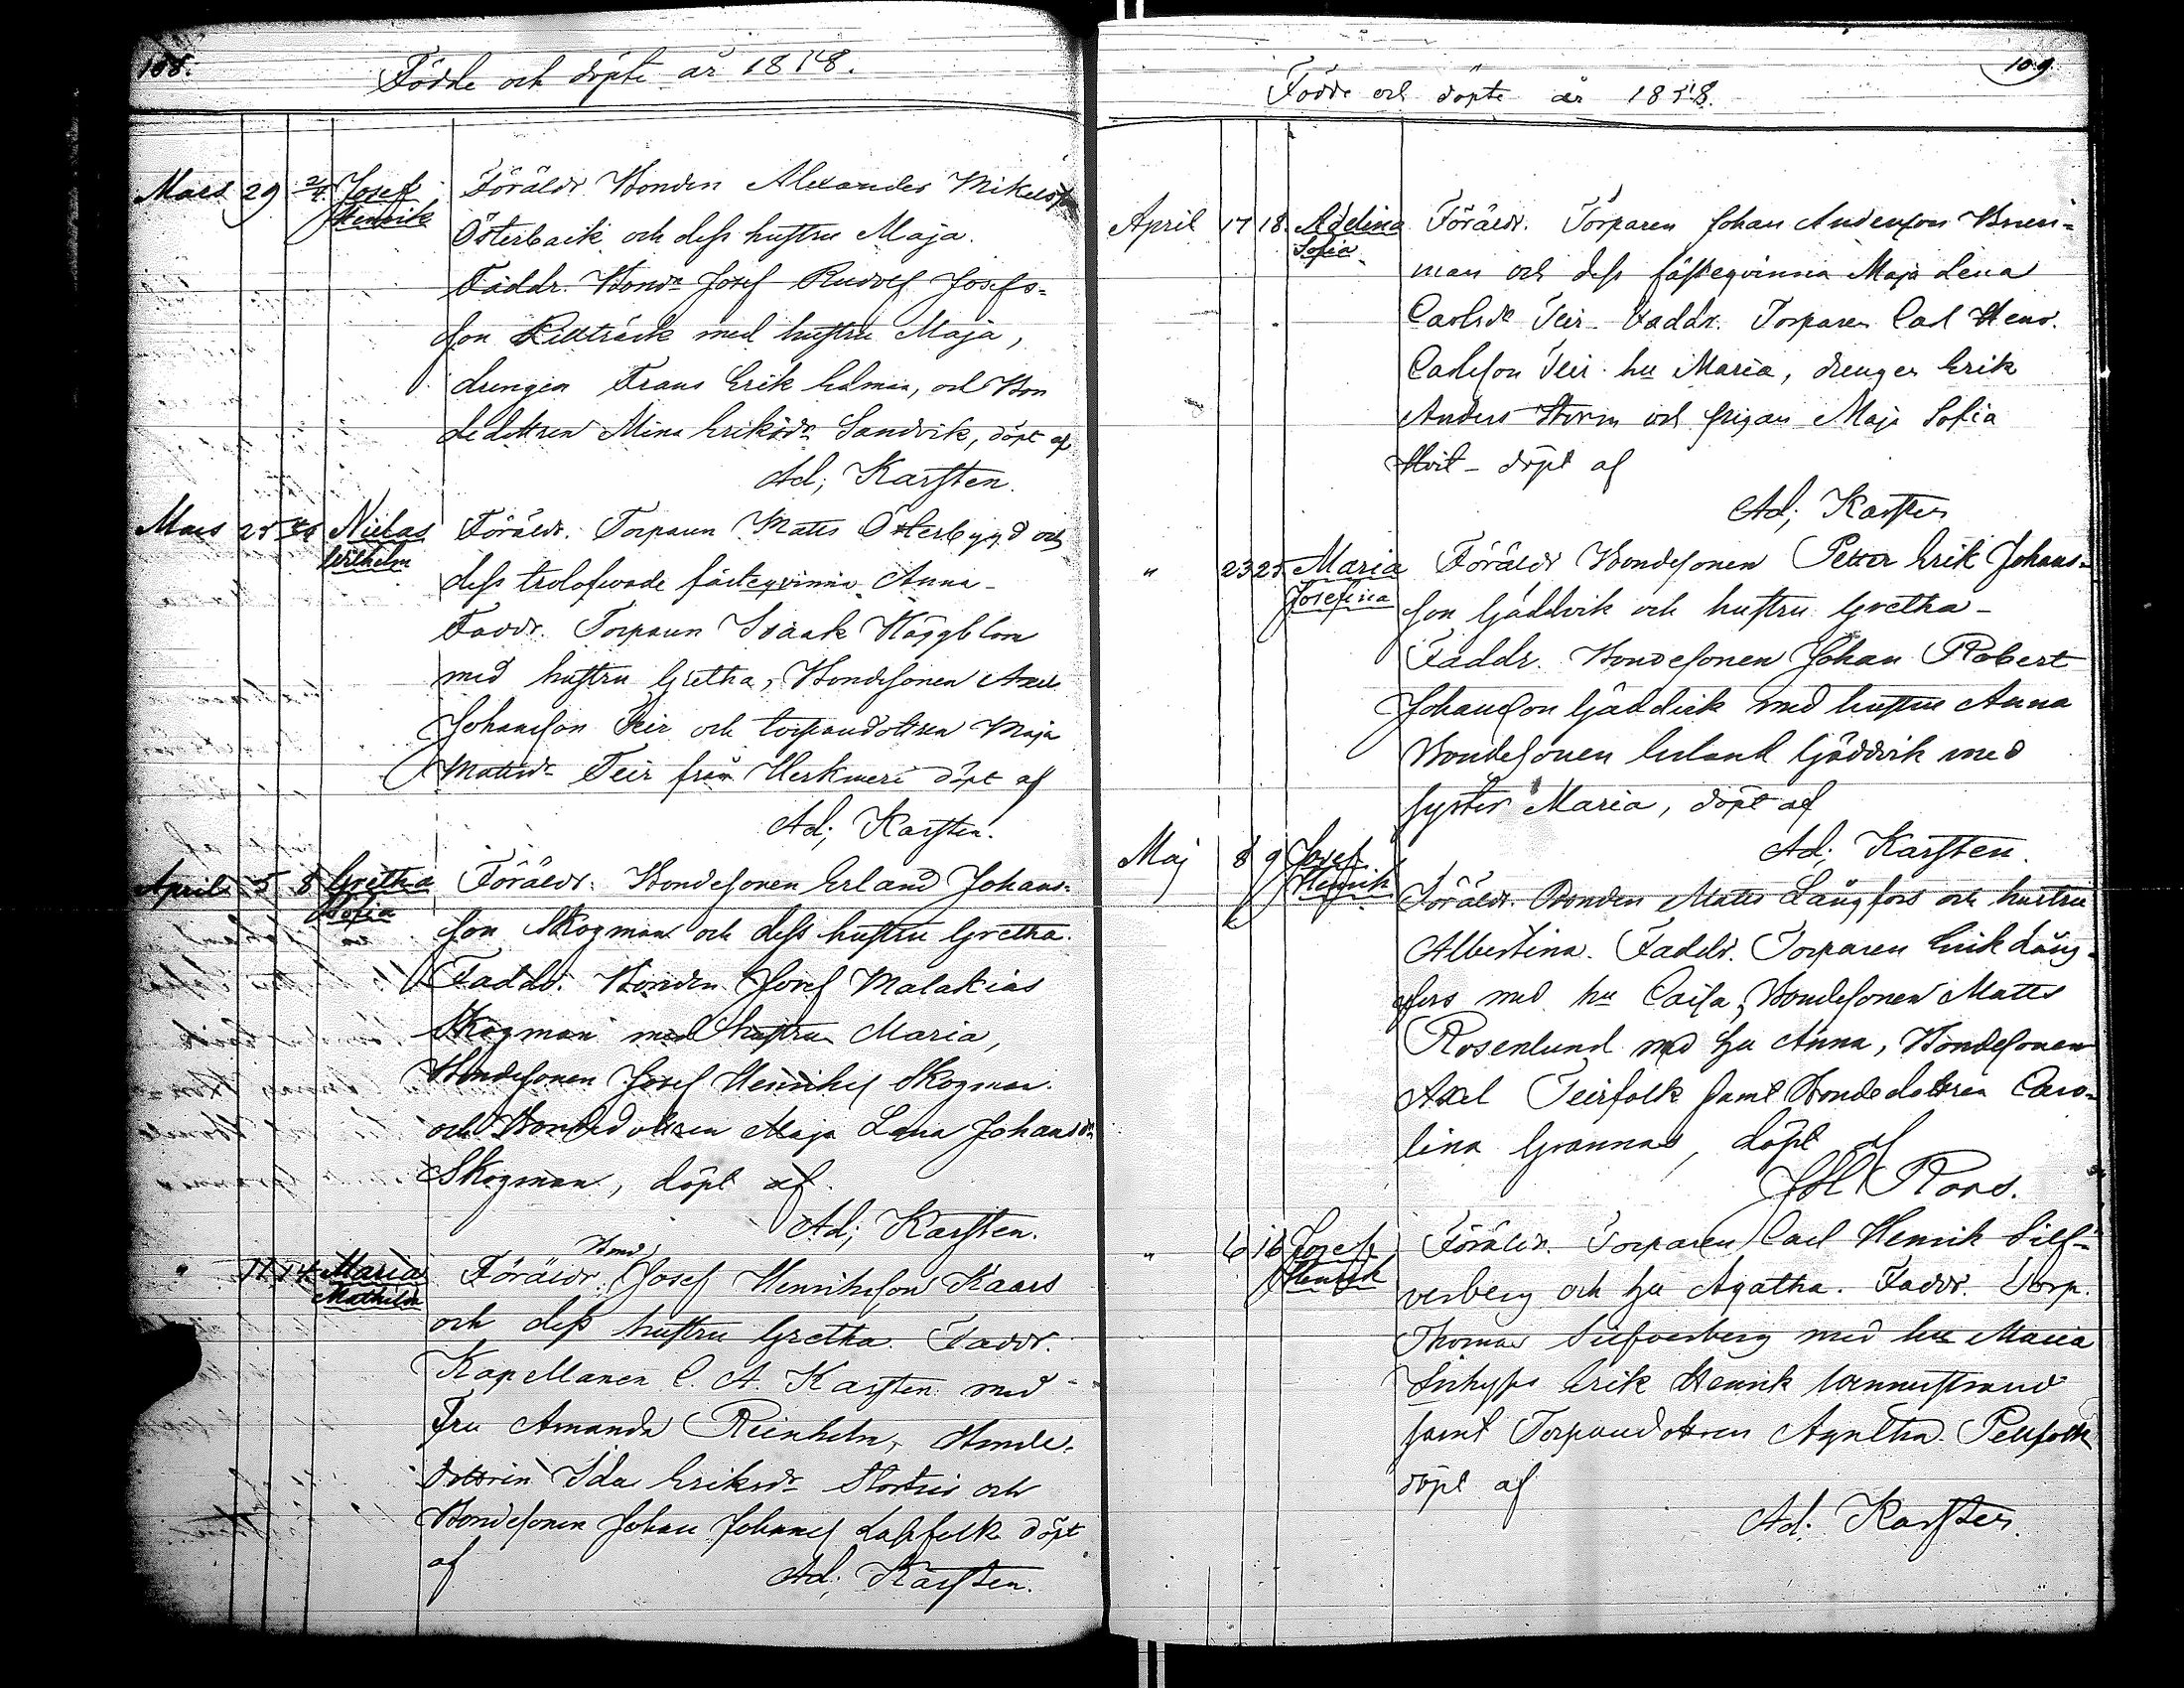 108.
Födde och döpte år 1878.
Mars 29 2/4 Josef Föräldr Bonden Alexander Mikelsson
Henrik Österback och dess hustru Maja.
Faddr. Bondn Josef Rudolf Josefs-
son med hustru Maja,
drengen Frans Erik holman, och Bon
dedottren Mina Eriksdr Sandvik, döpt af
Ad; Karsten.
Mars 25 Niclas Föräldr. Torparen Matts Österbygd och
Wilhelm dess trolofvade fästeqvinna Anna-
Faddr. Torparen Isaak Häggblom
med hustru Gretha, Bondesonen Axel
Johansson Teir och torparedottren Maja
Mattsdr Teir från Herkmeri döpt af
Ad; Karsten.
April 5 8 Gretha Föräldr. Bondesonen Erland Johans-
Sofia son Skogman och dess hustru Gretha.
Faddr. Bonden Josef Malakias
Skogman med hustru Maria,
Bondesonen Josef Henrikss Skogman
och Bondedottren Maja Lena Johansdr
Skogman, döpt af
Ad; Karsten.
" 11 14 Maria Föräldr. Bond. Josef Henriksson Kaars
Mathilda och dess hustru Gretha. Faddr.
Kapellanen C. A. Karsten med
Fru Amanda Reinholm, Bonde-
dottren Ida Eriksdr Storteir och
Bondesonen Johan Johanss Lapfolk döpt
af
Ad; Karsten.
109
Födde och döpte år 1878.
April 17 18. Adelina Föräldr. Torparen Johan Andersson Brun-
Sofia man och dess fästeqvinna Maja Lena
Carlsdr Teir. Faddr. Torparen Carl Henr.
Carlsson Teir hu Maria, drengen Erik
Anders Storm och pigan Maja Sofia
Hvit - döpt af
Ad; Karsten
" 23 25. Maria Föräldr Bondesonen Petter Erik Johans-
Josefina son Gäddvik och hustru Gretha-
Faddr. Bondesonen Johan Robert
Johansson Gäddvik med hustru Anna
Bondesonen Erland Gäddvik med
syster Maria, döpt af
Ad; Karsten.
Maj 8 9 Josef
Henrik Föräldr. Bonden Matts Långfors och hustru
Albertina. Faddr. Torparen Erik Lång-
fors med hu Caisa, Bondesonen Matts
Rosenlund med hu Anna, Bondesonen
Axel Teirfolk samt Bondedottren Caro-
lina Grannas, döpt af
Roos.
" 6 16 Josef Föräldr. Torparen Carl Henrik Silf-
Henrik verberg och hu Agatha. Faddr. Torp.
Thomas Silfverberg med hu Maria
Inhyses Erik Henrik
samt Torparedottren Agatha
döpt af
Ad. Karsten.